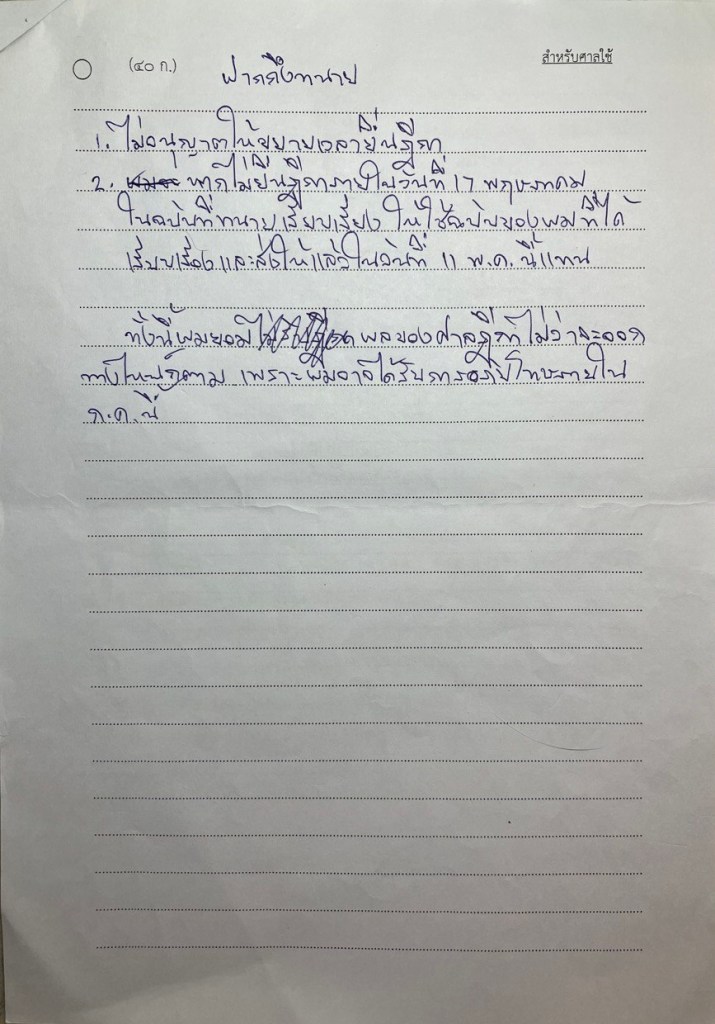 สำหรับศาลใช้
(๔๐ ก.)
ฝากถึงทนาย
1. ไม่อนุญาตให้ขยายเวลายื่นฎีกา
2. หากไม่ยื่นฎีกาภายในวันที่ 17 พฤษภาคม
ในฉบับที่ทนายเรียบเรียง ให้ใช้ฉบับของผมที่ได้
เรียบเรียงและส่งให้แล้วในวันที่ 11 พ.ค. นี้แทน
ทั้งนี้ผมยอมรับผลของศาลฎีกาไม่ว่าจะออก
ทางไหนก็ตาม เพราะผมอาจได้รับการอภัยโทษภายใน
ก.ค. นี้